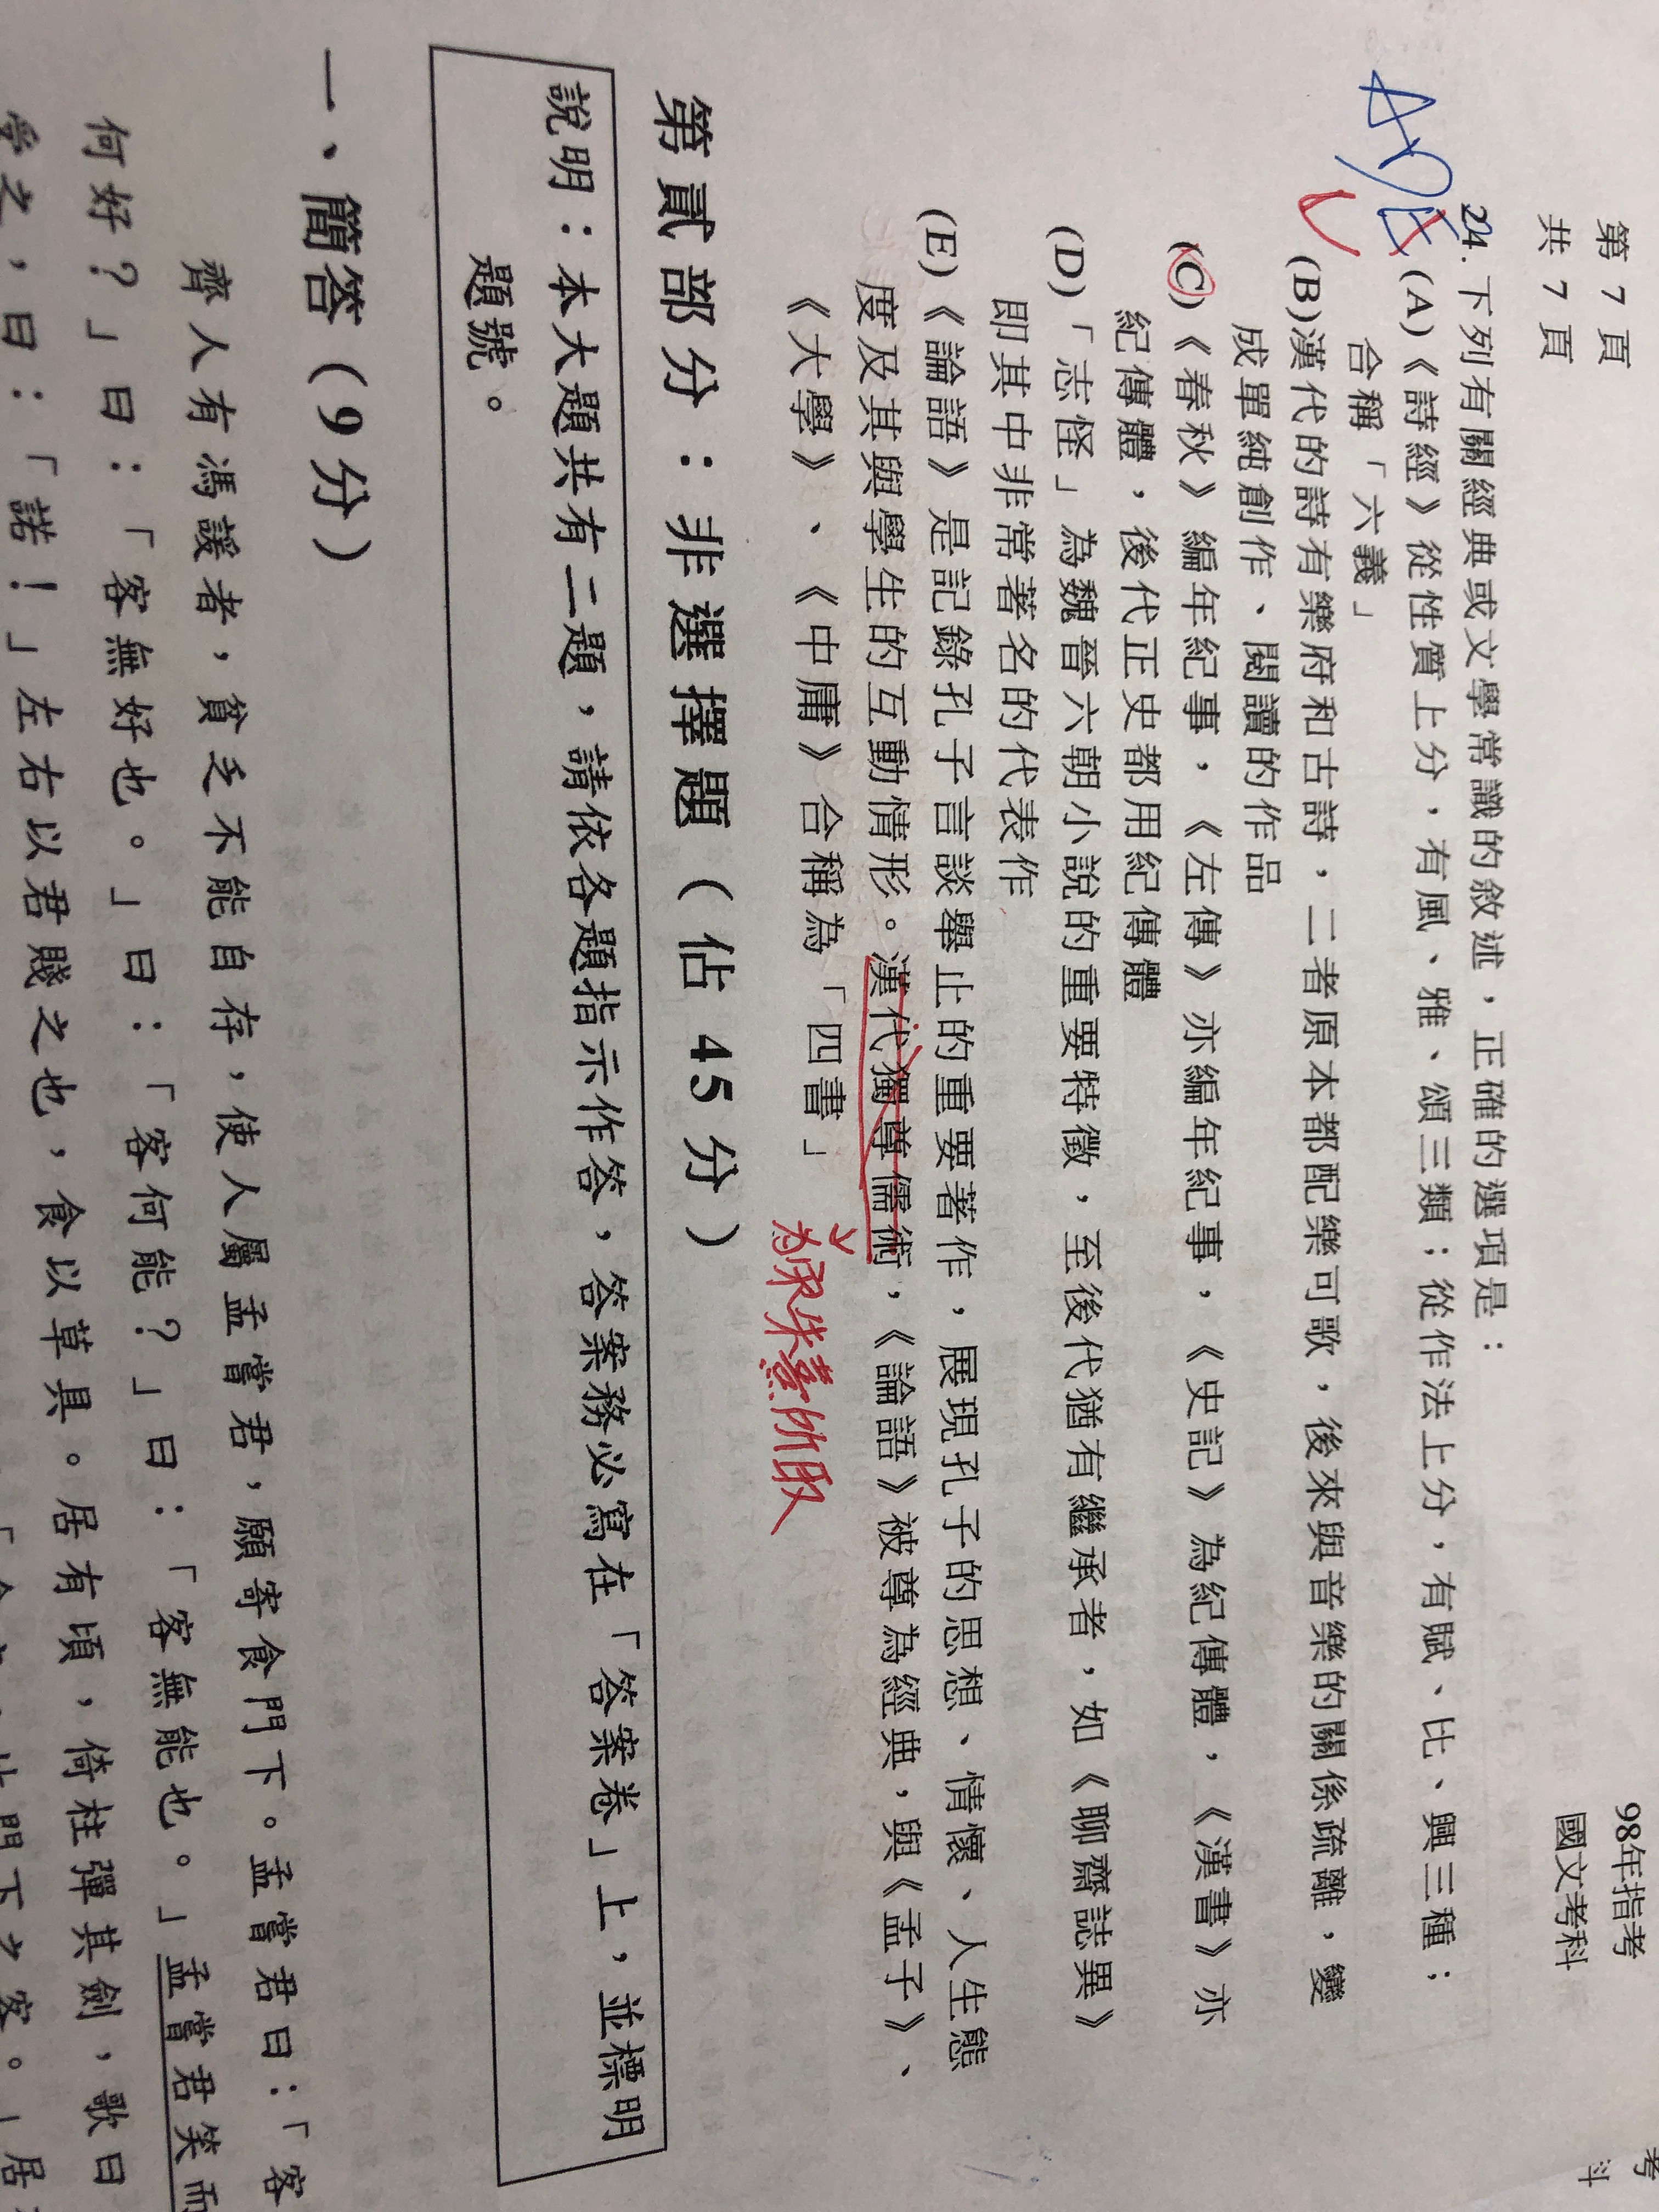 第 7 頁
共 7 頁
98年指考
國文考科
24. 下列有關經典或文學常識的敘述，正確的選項是：
(A)《詩經》從性質上分，有風、雅、頌三類；從作法上分，有賦、比、興三種；
合稱「六義」
(B)漢代的詩有樂府和古詩，二者原本都配樂可歌，後來與音樂的關係疏離，變
成單純創作、閱讀的作品
(C)《春秋》編年紀事，《左傳》亦編年紀事，《史記》為紀傳體，《漢書》亦
紀傳體，後代正史都用紀傳體
(D)「志怪」為魏晉六朝小說的重要特徵，至後代猶有繼承者，如《聊齋誌異》
即其中非常著名的代表作
(E)《論語》是記錄孔子言談舉止的重要著作，展現孔子的思想、情懷、人生態
度及其與學生的互動情形。漢代獨尊儒術，《論語》被尊為經典，與《孟子》、
《大學》、《中庸》合稱為「四書」
為宋朱熹所取
第貳部分：非選擇題（佔 45 分）
說明：本大題共有二題，請依各題指示作答，答案務必寫在「答案卷」上，並標明
題號。
一、簡答（9分）
齊人有馮諼者，貧乏不能自存，使人屬孟嘗君，願寄食門下。孟嘗君曰：「客
何好？」曰：「客無好也。」曰：「客何能？」曰：「客無能也。」孟嘗君笑而
受之，曰：「諾！」左右以君賤之也，食以草具。居有頃，倚柱彈其劍，歌曰
門下之客。」居
考
科